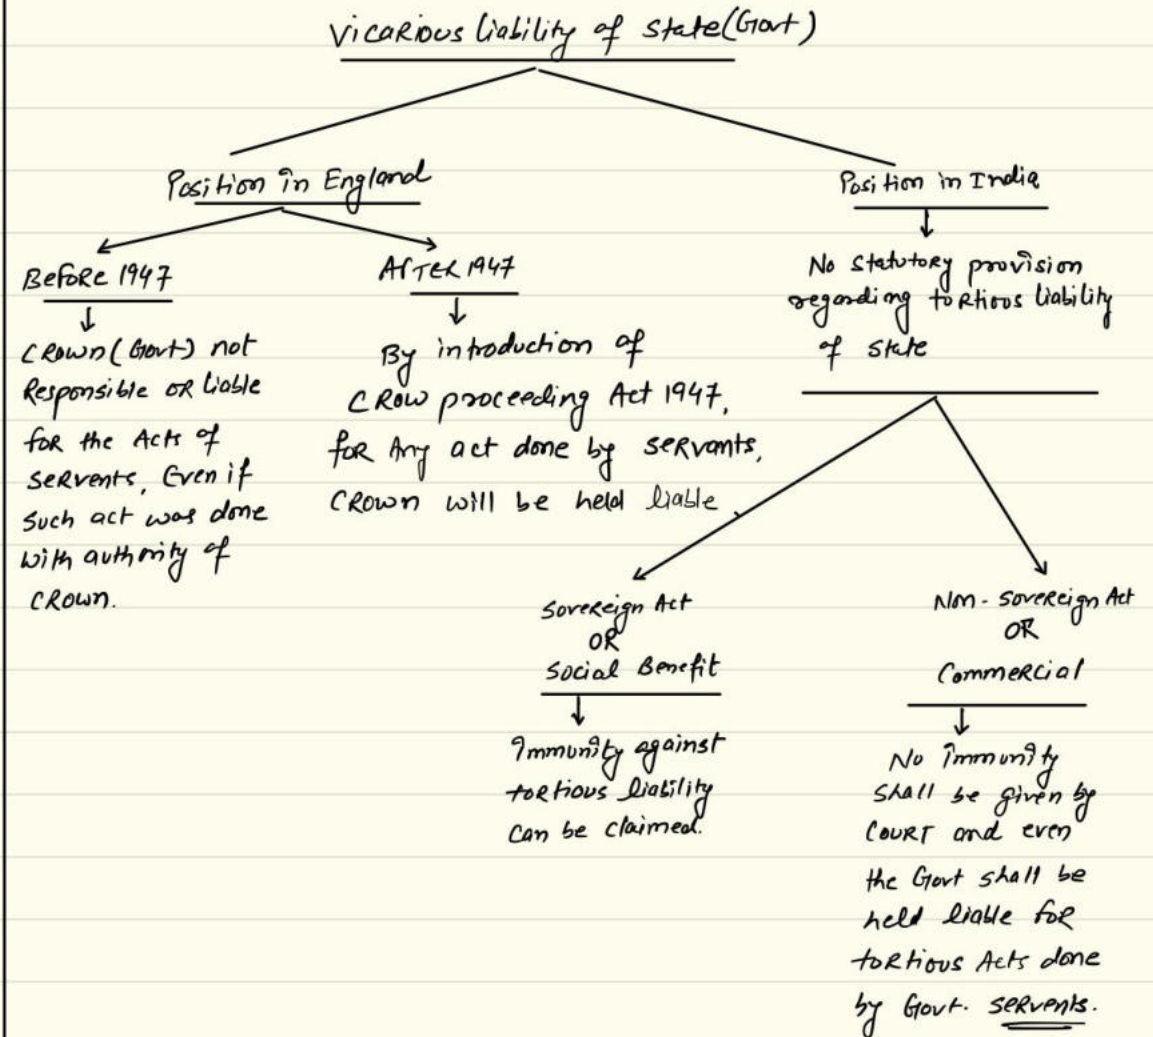 Vicarious liability of State(Govt)
Position in England
Before 1947
Crown(Govt) not
Responsible or liable
for the Acts of
servents, Even if
such act was done
with authority of
Crown.
After 1947
By introduction of
Crow proceeding Act 1947,
for Any act done by servants,
Crown will be held liable.
Position in India
No statutory provision
regarding tortious liability
of state
Sovereign Act
OR
Social Benefit
Immunity against
tortious liability
can be claimed.
Non-sovereign Act
OR
Commercial
No immunity
shall be given by
Court and even
the Govt shall be
held liable for
tortious Acts done
by Govt. servents.